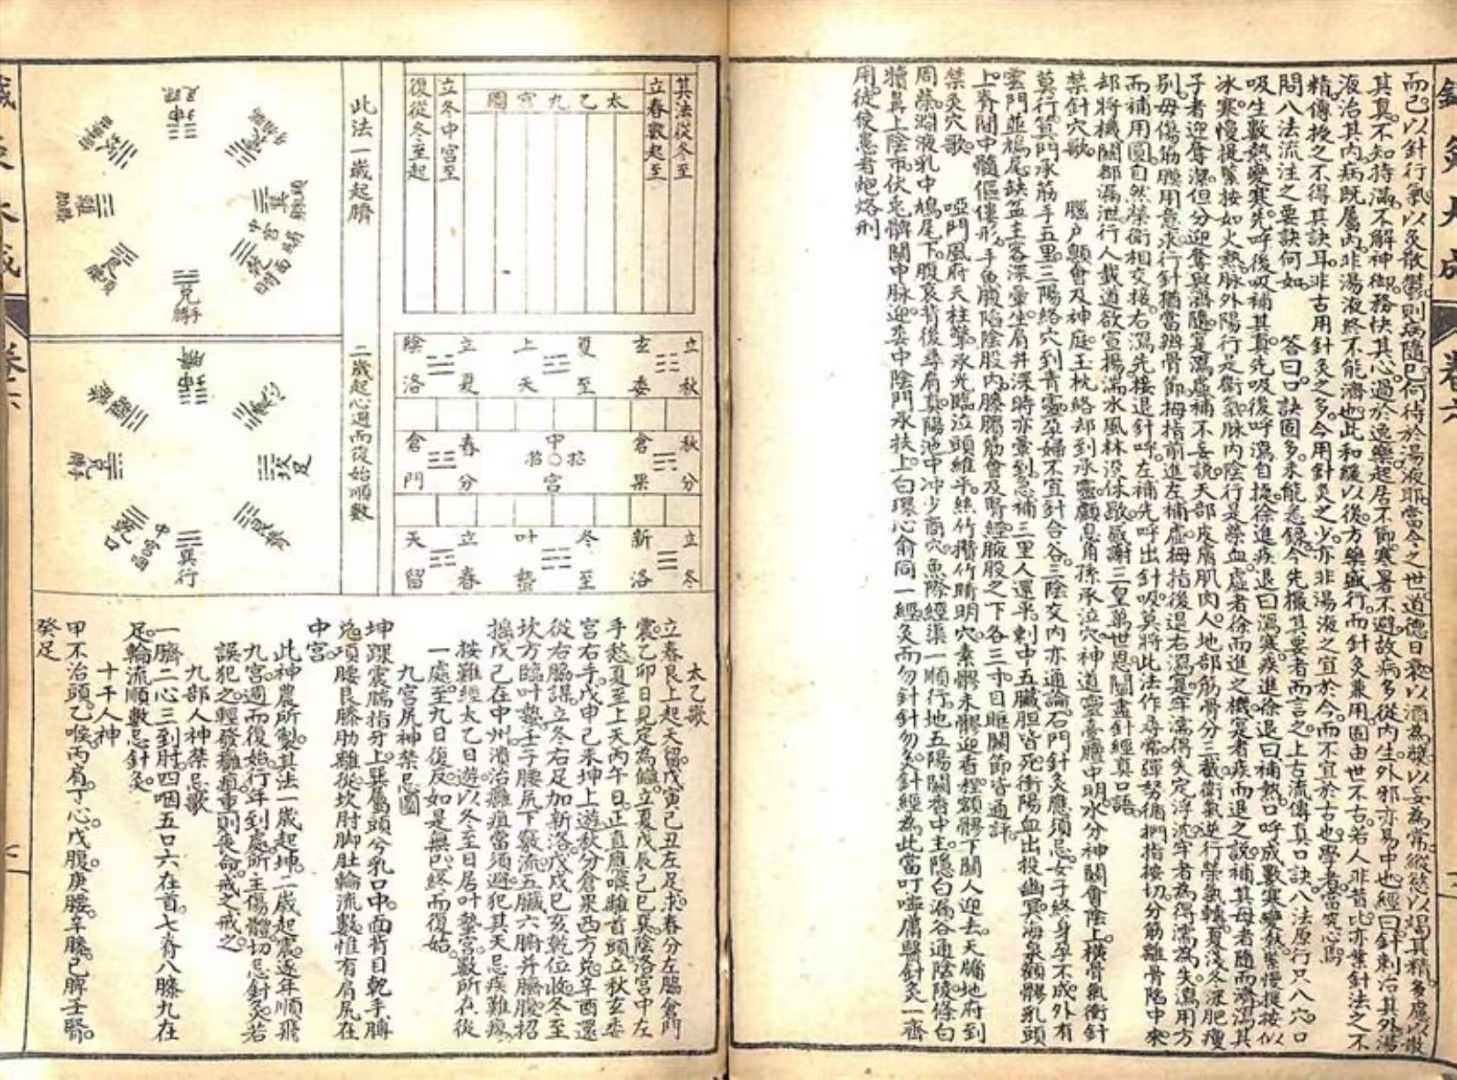 鍼灸大成
卷六
而已以針行氣以灸散鬱則病隨已何待於湯液耶當今之世道德日衰以酒為漿以妄為常縱慾以竭其精多慮以散
其真不知持滿不解神御務快其心過於逸樂起居不節寒暑不避故病多從內生外邪亦易中也經曰針刺治其外湯
液治其內病既屬內非湯液終不能濟也此和緩以後方藥盛行而針灸兼用固由世不古若人非昔比亦業針法之不
精傳授之不得其訣耳非古用針灸之多今用針灸之少亦非湯液之宜於今而不宜於古也學者當究心焉
問八法流注之要訣何如 答曰口訣固多未能悉錄今先撮其要者而言之上古流傳真口訣八法原行只八穴口
吸生數熱變寒先呼後吸補其真先吸後呼瀉自捷徐進疾退曰瀉寒疾進徐退曰補熱口呼成數寒變熱緊慢提按似
冰寒慢提緊按如火熱脉外陽行是衛氣脉內陰行是榮血虛者徐而進之機實者疾而退之說補其母者隨而濟瀉其
子者迎奪潔但分迎奪與濟隨實瀉虛補不妄說天部皮膚肌肉人地部筋骨分三截衛氣逆行榮氣轉夏淺冬深肥瘦
別毋傷筋膜用意求行針猶當辨骨節拇指前進左補虛拇指後退右瀉實牢濡得失定浮沈牢者為得濡為失瀉用方
而補用圓自然榮衛相交接右瀉先捼退針呼左補先呼出針吸莫將此法作尋常彈努循捫指按切分筋離骨陷中來
却將機關都漏泄行人載道欲宣揚湍水風林沒休歇感謝三皇萬世恩闡盡針經真口訣
禁針穴歌 腦戶顖會及神庭玉枕絡却到承靈顱息角孫承泣穴神道靈臺膻中明水分神闕會陰上橫骨氣衝針
莫行箕門承筋手五里三陽絡穴到青靈孕婦不宜針合谷三陰交內亦通論石門針灸應須忌女子終身孕不成外有
雲門並鳩尾缺盆主客深暈生肩井深時亦暈到急補三里人還平刺中五臟胆皆死衝陽血出投幽冥海泉顴髎乳頭
上脊間中髓傴僂形手魚腹陷陰股內膝臏筋會及腎經腋股之下各三寸目眶關節皆通評
禁灸穴歌 啞門風府天柱擎承光臨泣頭維平絲竹攢竹睛明穴素髎禾髎迎香程顴髎下關人迎去天牖地府到
周榮淵液乳中鳩尾下腹哀背後尋肩貞陽池中冲少商穴魚際經渠一順行地五陽關脊中主隱白漏谷通陰陵條白
犢鼻上陰市伏兎髀關中脉迎委中陰門承扶上白環心俞同一經灸而勿針針勿灸針經為此當叮嚀庸醫針灸一齊
用徒使患者炮烙刑
其法從冬至
立春數起至
太乙九宮圖
立冬中宮至
復從冬至起
立秋 玄委
夏至 上天
立夏 陰洛
秋分 倉果
中宮 招搖
春分 倉門
立冬 新洛
冬至 叶蟄
立春 天留
此法一歲起臍
坤 足踝
巽
乾 面
中宮
兌 手膊
艮
離
坎
二歲起心週而復始順數
坤
坎足
巽行
乾口
中宮
太乙歌
立春艮上起天留戊寅己丑左足求春分左脇倉門
震乙卯日見定為讎立夏戊辰己巳巽陰洛宮中左
手愁夏至上天丙午日正直應喉離首頭立秋玄委
宮右手戊申己未坤上遊秋分倉果西方兌辛酉還
從右脇謀立冬右足加新洛戊戌己亥乾位收冬至
坎方臨叶蟄壬子腰尻下竅流五臟六腑并臍腹招
搖戊己在中州潰治癰疽當須避犯其天忌疾難瘳
按難經太乙日遊以冬至日居叶蟄宮數所在從
一處至九日復反如是無已終而復始
九宮尻神禁忌圖
坤踝震腨指牙上巽屬頭兮乳口中面背目乾手膊
兌項腰艮膝肋離從坎肘脚肚輪流數惟有肩尻在
中宮
此神農所製其法一歲起坤二歲起震逐年順飛
九宮週而復始行年到處所主傷體切忌針灸若
誤犯之輕發癰疽重則喪命戒之戒之
九部人神禁忌歌
一臍二心三到肘四咽五口六在首七脊八膝九在
足輪流順數忌針灸
十干人神
甲不治頭乙喉丙肩丁心戊腹庚腰辛膝己脾壬腎
癸足